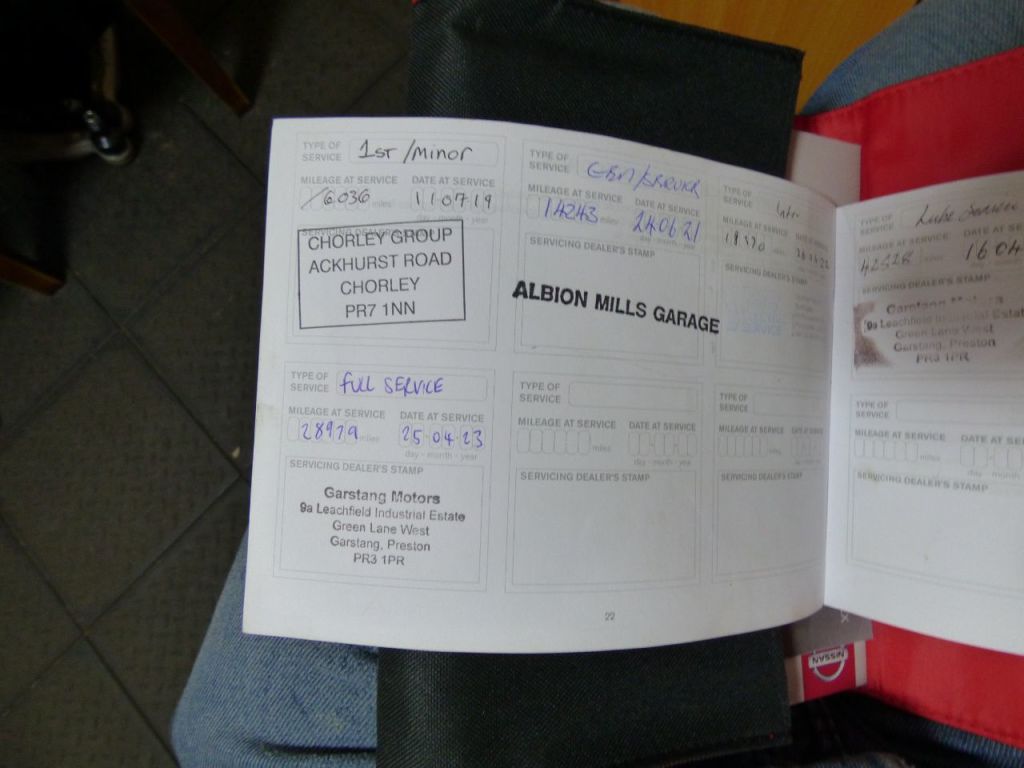 TYPE OF SERVICE 1ST / MINOR
MILEAGE AT SERVICE DATE AT SERVICE
6036 miles 11 07 19
day - month - year
SERVICING DEALER'S STAMP
CHORLEY GROUP
ACKHURST ROAD
CHORLEY
PR7 1NN
TYPE OF SERVICE
MILEAGE AT SERVICE DATE AT SERVICE
14243 miles 24 06 21
day - month - year
SERVICING DEALER'S STAMP
ALBION MILLS GARAGE
TYPE OF SERVICE
MILEAGE AT SERVICE DATE AT
SERVICING DEALER'S STAMP
TYPE OF SERVICE
MILEAGE AT SERVICE DATE AT SE
42528 miles 16 04
SERVICING DEALER'S STAMP
Garstang Motors
9a Leachfield Industrial Estate
Green Lane West
Garstang, Preston
PR3 1PR
TYPE OF SERVICE FULL SERVICE
MILEAGE AT SERVICE DATE AT SERVICE
28979 miles 25 04 23
day - month - year
SERVICING DEALER'S STAMP
Garstang Motors
9a Leachfield Industrial Estate
Green Lane West
Garstang, Preston
PR3 1PR
TYPE OF SERVICE
MILEAGE AT SERVICE DATE AT SERVICE
miles
day - month - year
SERVICING DEALER'S STAMP
TYPE OF SERVICE
MILEAGE AT SERVICE DATE AT
miles
SERVICING DEALER'S STAMP
TYPE OF SERVICE
MILEAGE AT SERVICE DATE AT S
miles
day - month
SERVICING DEALER'S STAMP
22
NISSAN